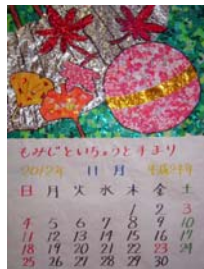 もみじといちょうと手まり
2012年 11月 平成24年
日 月 火 水 木 金 土
1 2 3
4 5 6 7 8 9 10
11 12 13 14 15 16 17
18 19 20 21 22 23 24
25 26 27 28 29 30